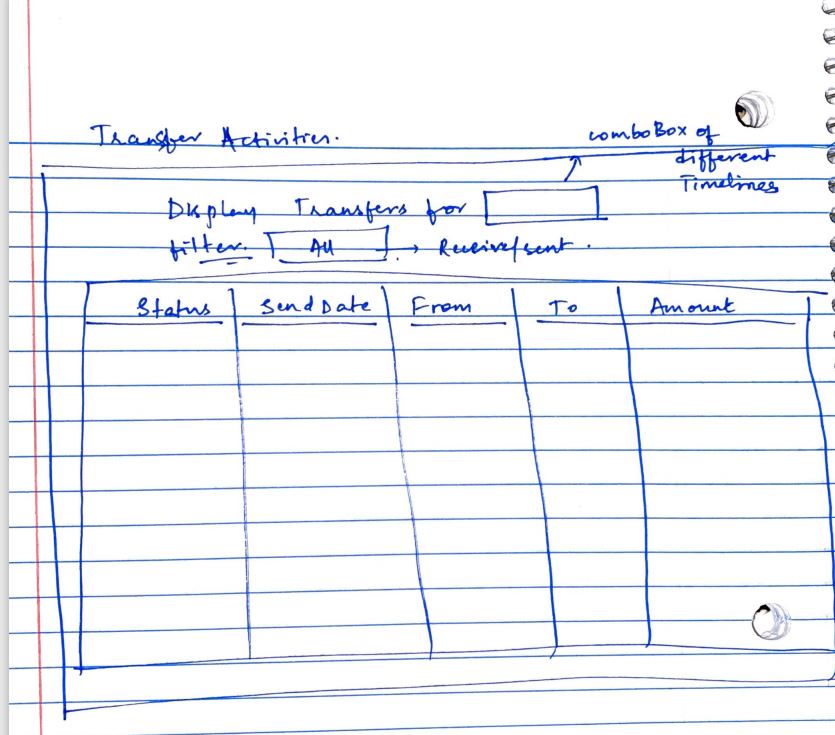 Transfer Activities.
comboBox of
different
Timelines
Display Transfers for
filter. All → Receive/sent.
Status SendDate From To Amount